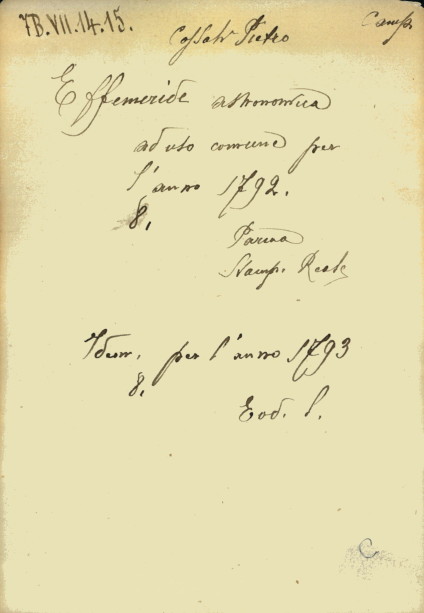 7B.VII.14.15.
Camp.
Cossali Pietro
Effemeride astronomica
ad uso comune per
l'anno 1792.
8.
Parma
Stamp. Reale
Idem. per l'anno 1793
8.
Eod. l.
C